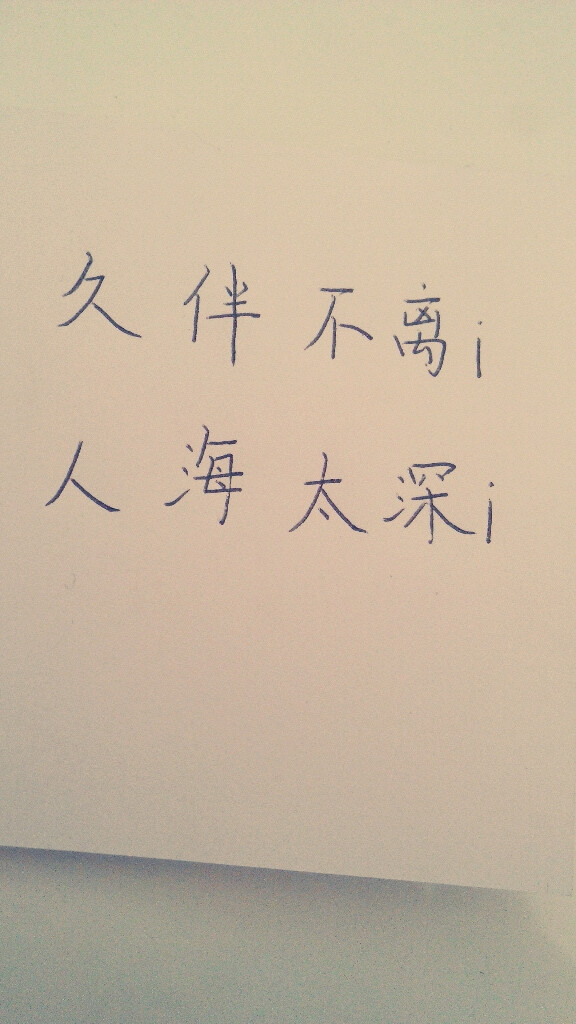 久伴不离i
人海太深i